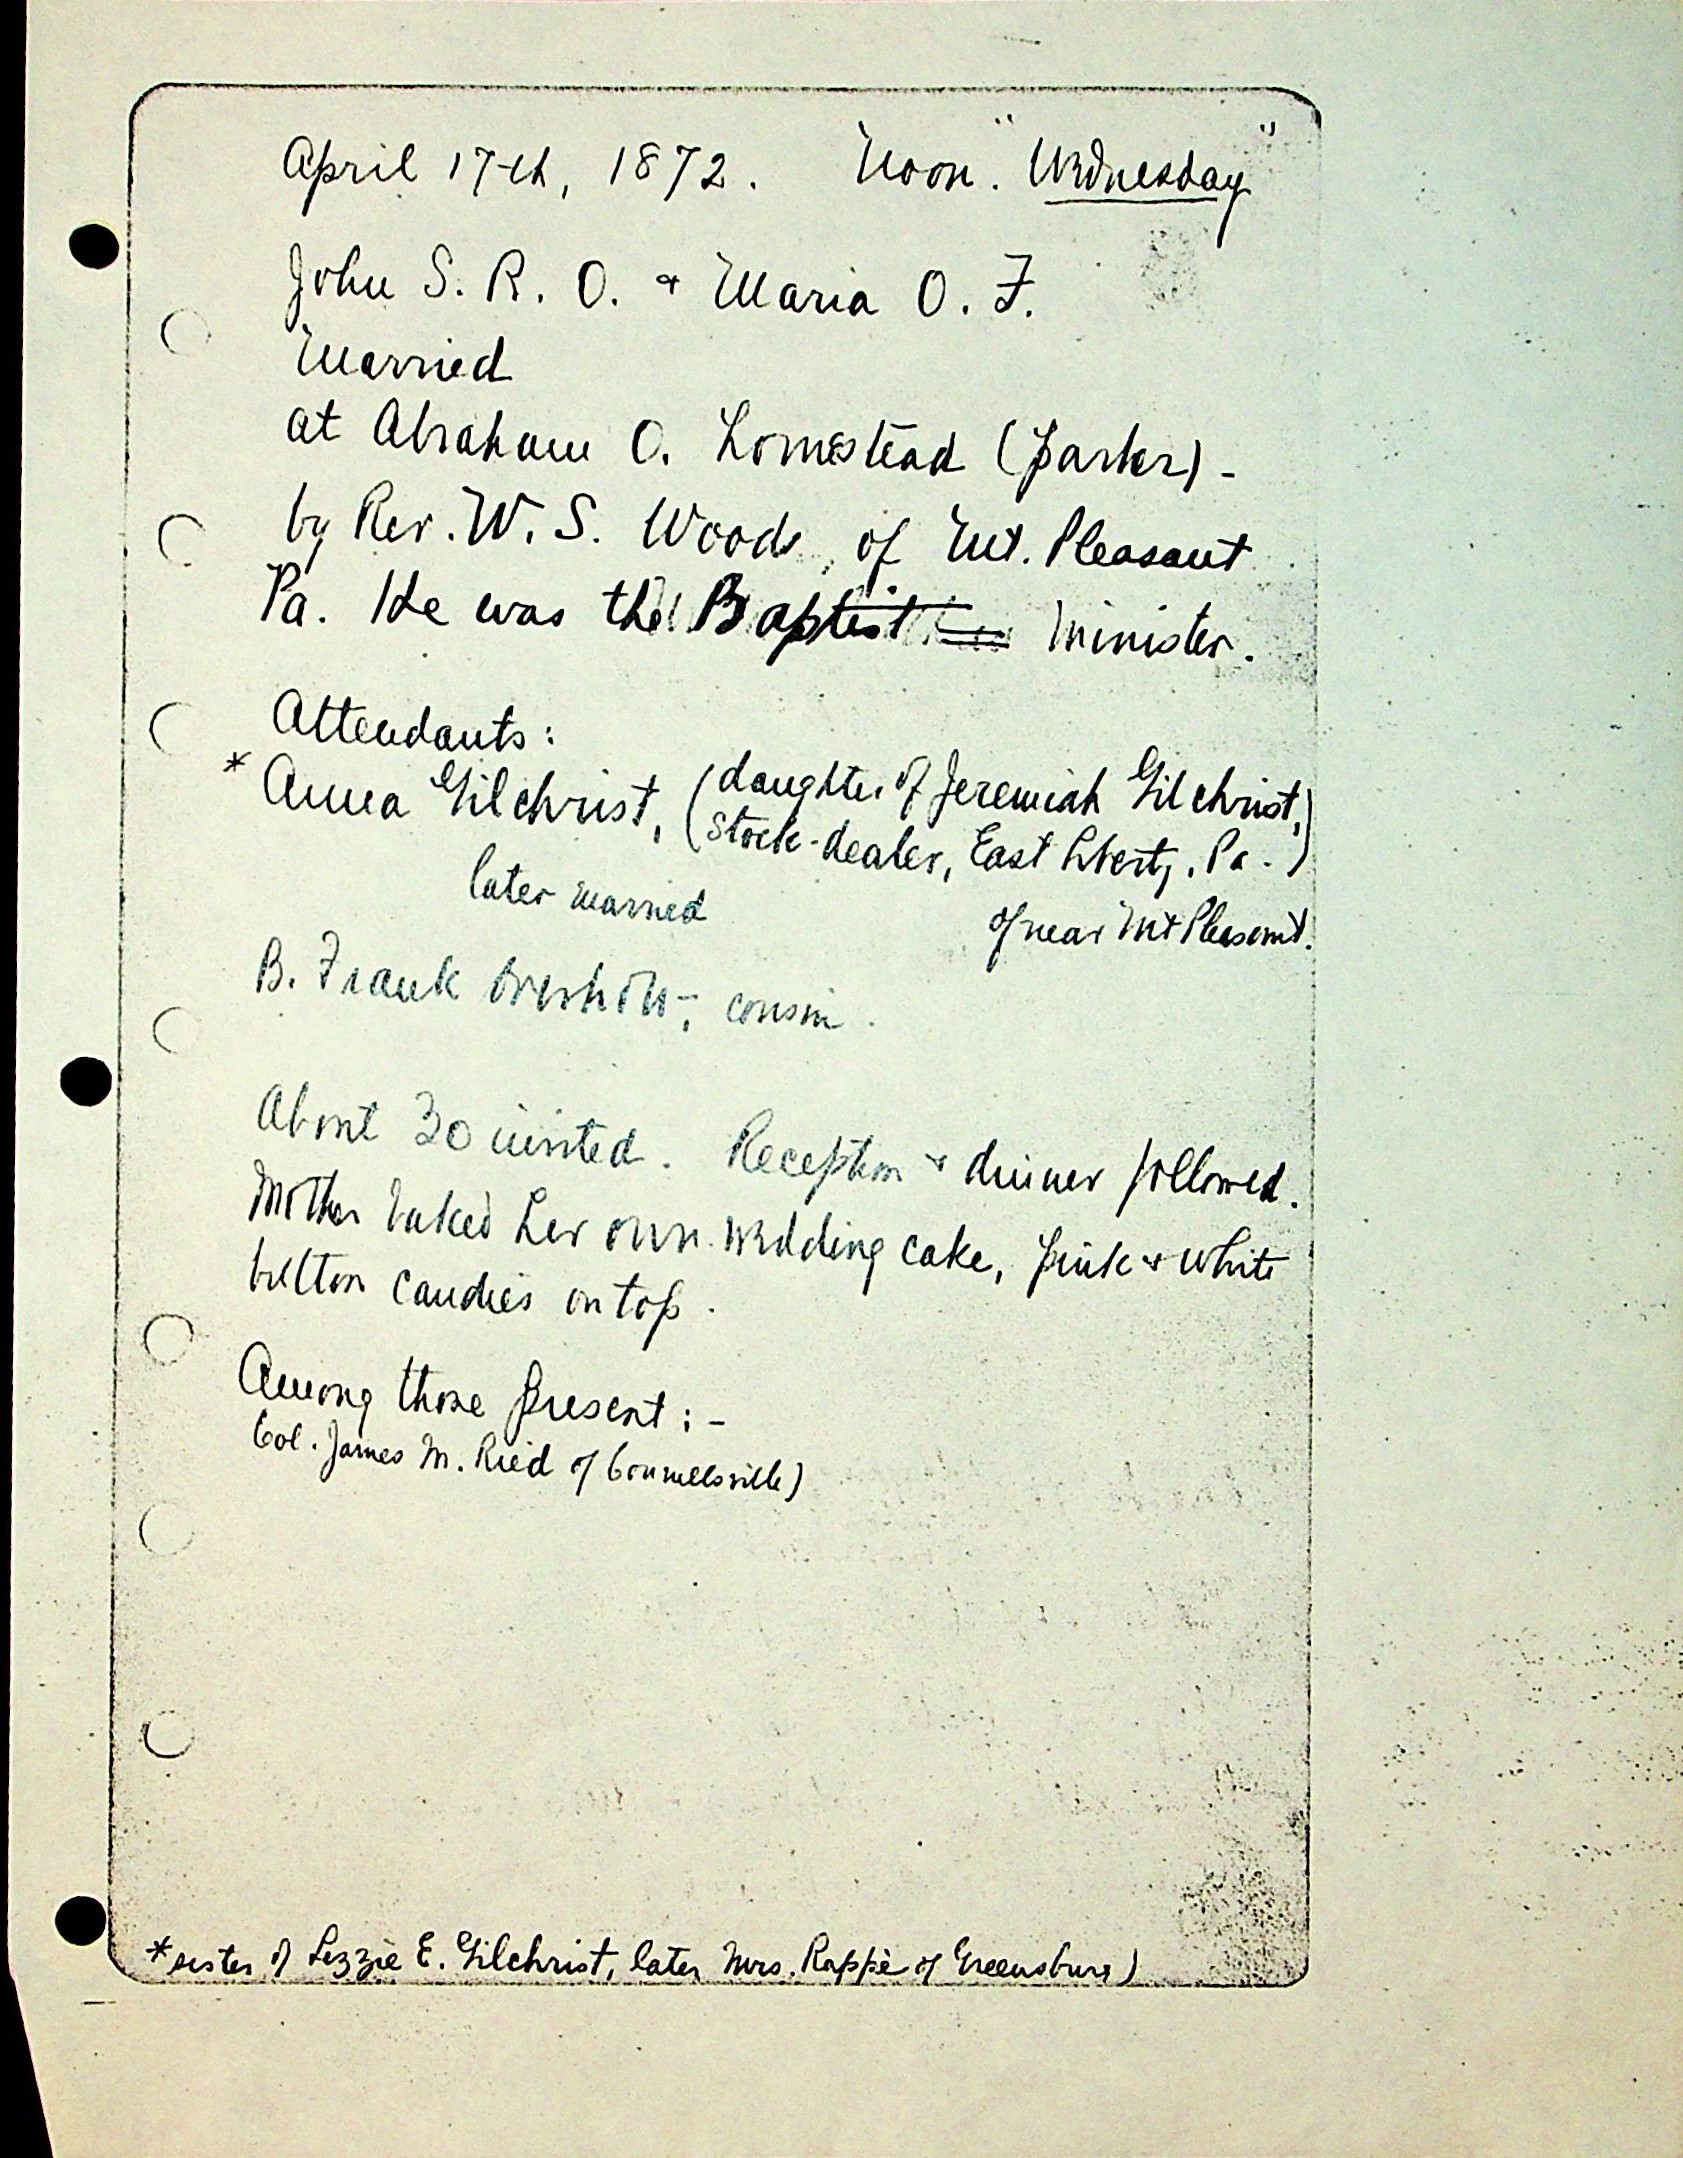 April 17th, 1872. Noon. "Wednesday"
John S. R. O. & Maria O. F.
Married
at Abraham O. homestead (parlor) -
by Rev. W. S. Woods, of Mt. Pleasant
Pa. He was the Baptist minister.
Attendants:
* Anna Gilchrist, (daughter of Jeremiah Gilchrist,
stock-dealer, East Liberty, Pa.)
later married of near Mt Pleasant.
B. Frank Overholt, cousin.
About 30 invited. Reception & dinner followed.
Mother baked her own wedding cake, pink & white
button candies on top.
Among those present:-
Col. James M. Ried of Connellsville)
* sister of Lizzie E. Gilchrist, later Mrs. Rappe of Greensburg)